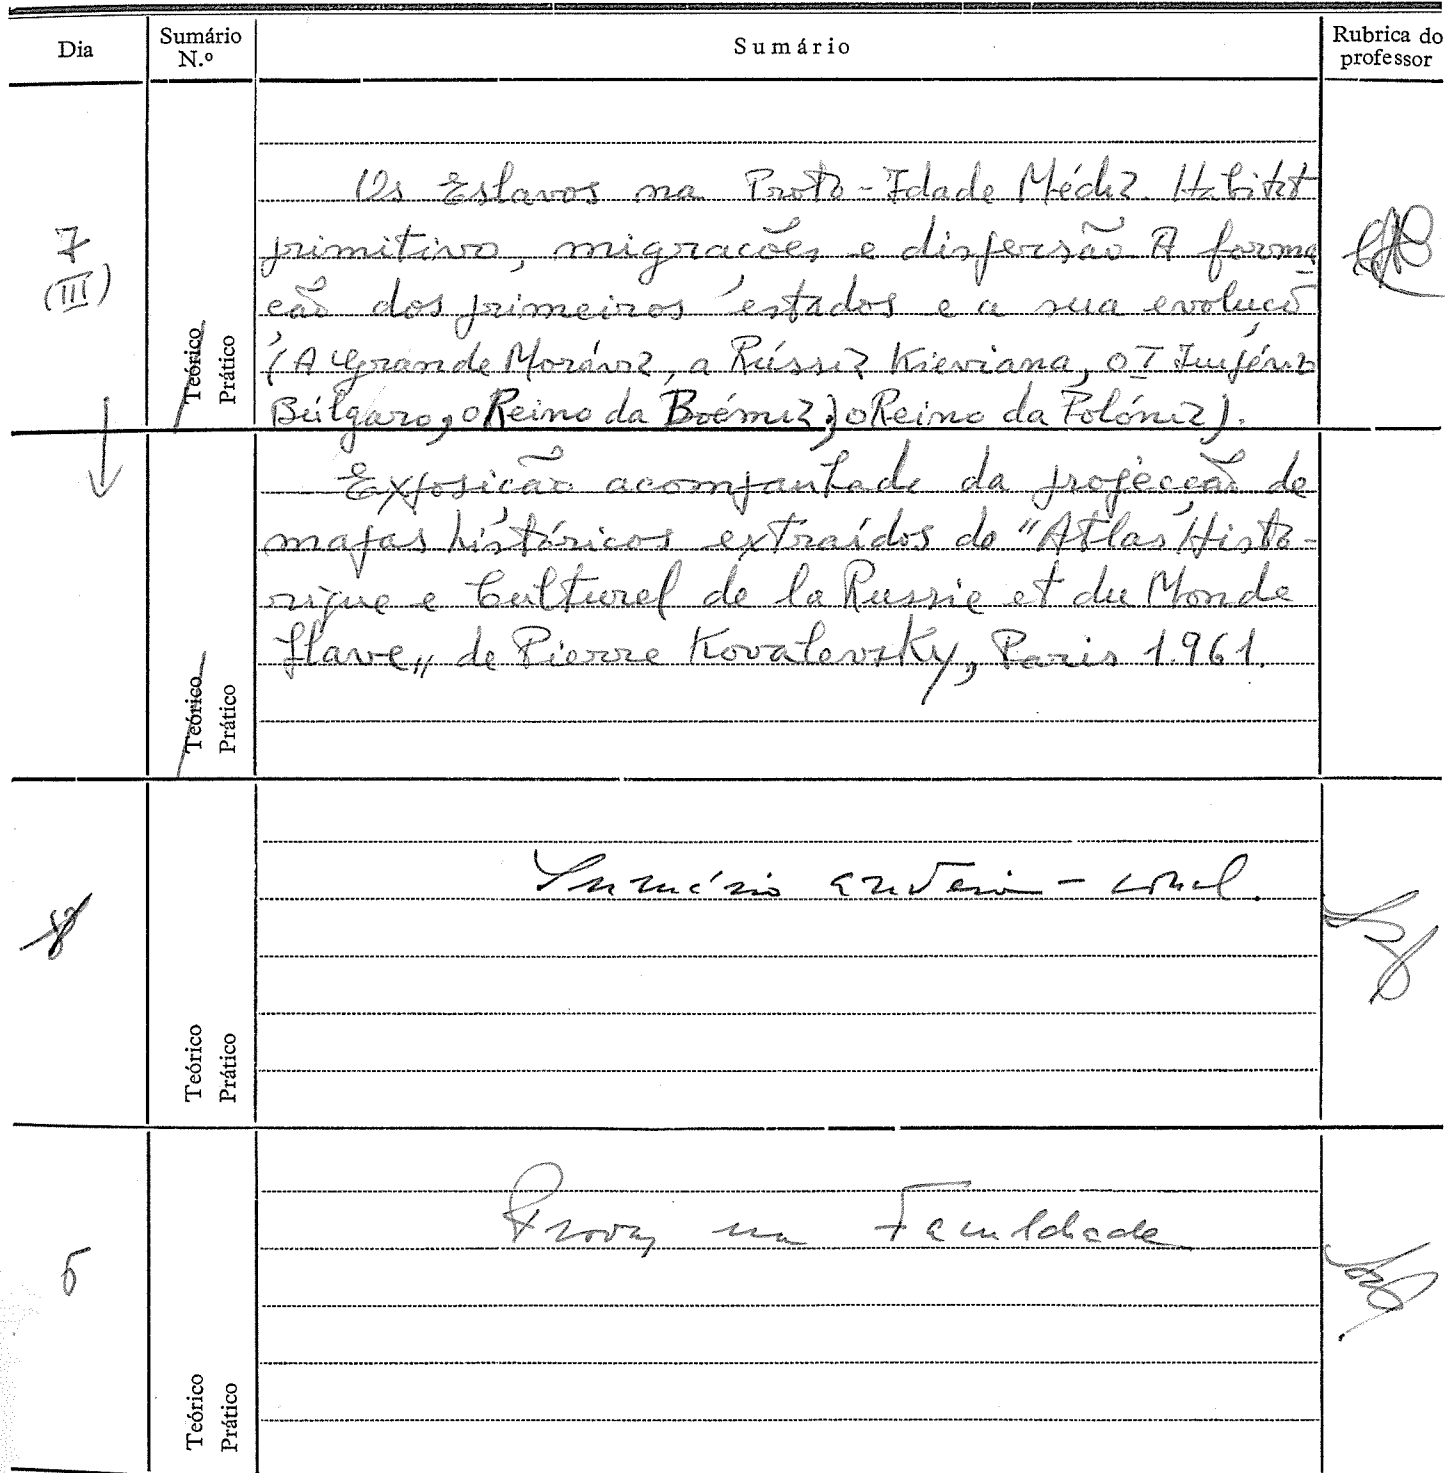 Dia Sumário N.º Sumário Rubrica do professor
7 (III)
Os Eslavos na Proto-Idade Média. Habitat
primitivo, migrações e dispersão A forma
ção dos primeiros estados e a sua evolução
(A Grande Morávia, a Rússia Kieviana, o I Império
Búlgaro, o Reino da Boémia, o Reino da Polónia).
Teórico
Prático
Exposição acompanhada da projecção de
mapas históricos extraídos do "Atlas Histo-
rique e Culturel de la Russie et du Monde
Slave" de Pierre Kovalevsky, Paris 1.961.
Teórico
Prático
8
Sumário anterior
Teórico
Prático
5
Provas na Faculdade
Teórico
Prático